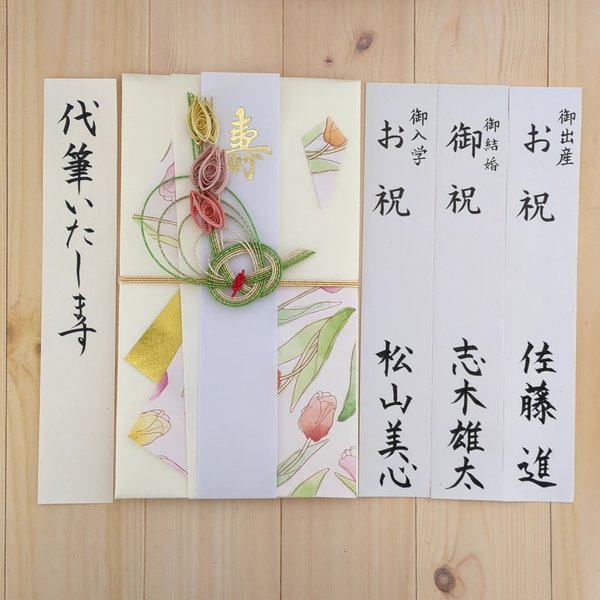 御出産
お祝
佐藤進
御結婚
御祝
志木雄太
御入学
お祝
松山美心
寿
代筆いたします